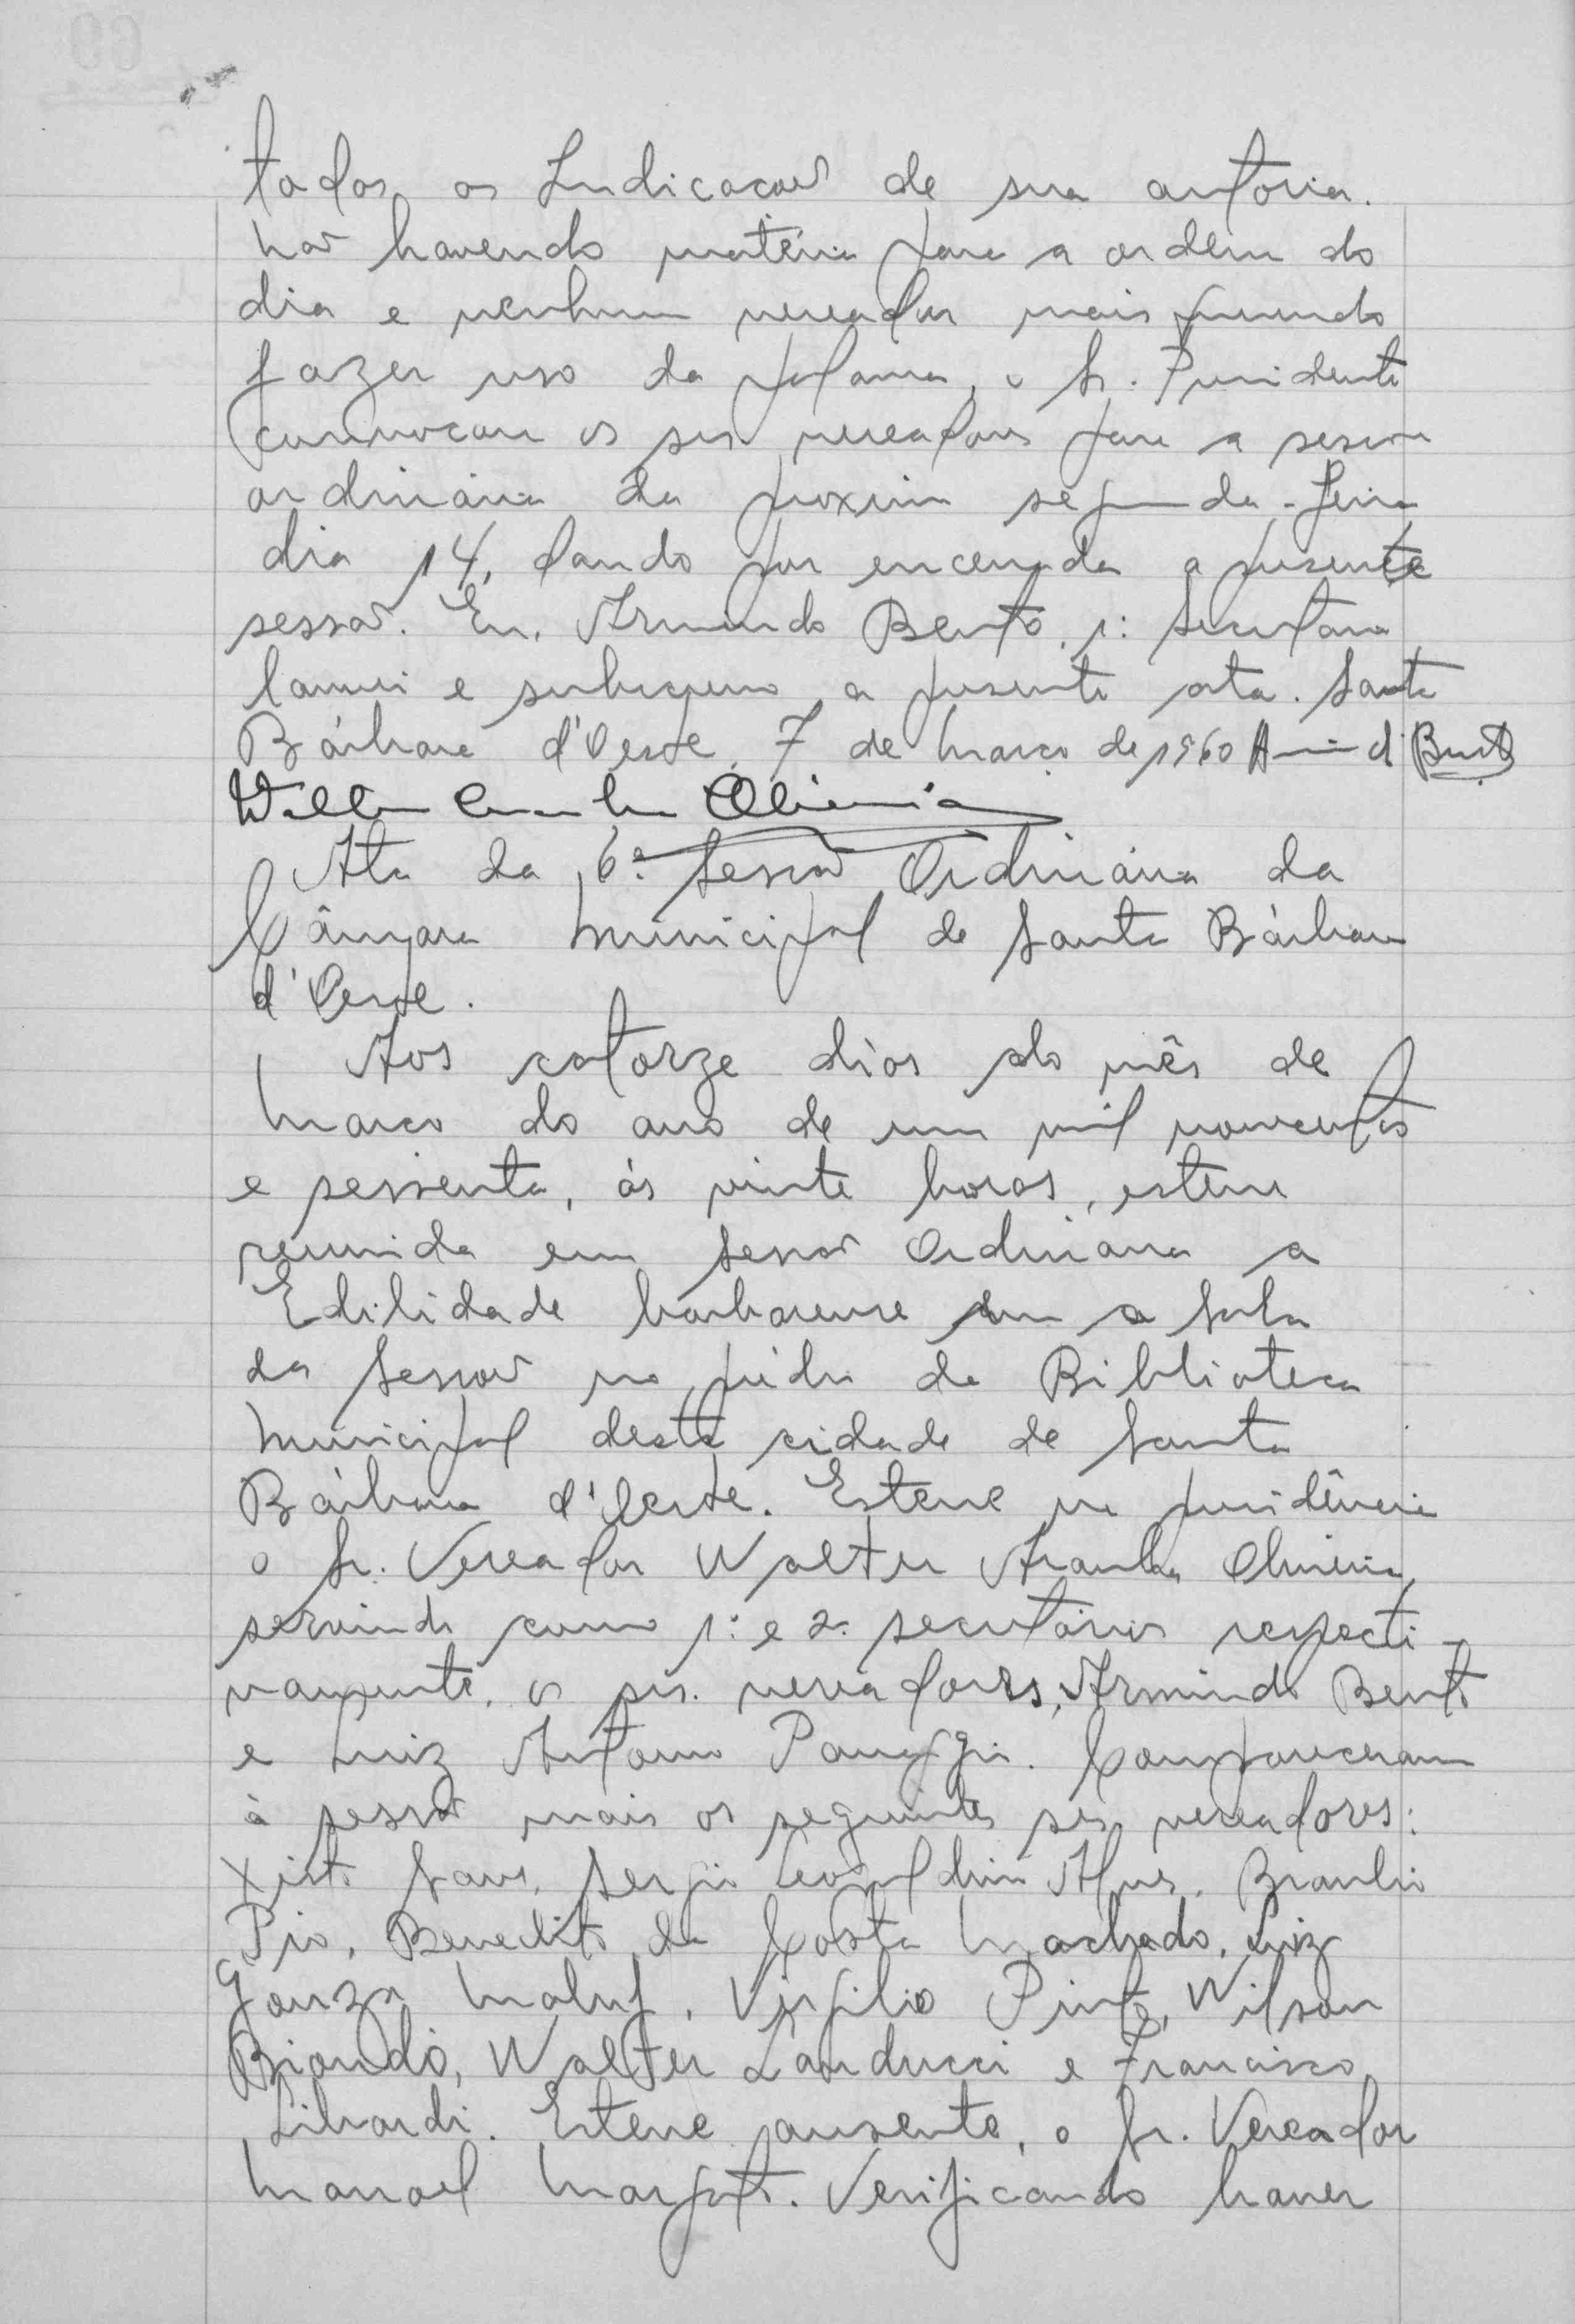 tadas as Indicações de sua autoria.
Não havendo matéria para a ordem do
dia e nenhum vereador mais querendo
fazer uso da palavra, o Sr. Presidente
convocou os srs vereadores para a sessão
ordinária da proxima segunda-feira
dia 14, dando por encerrada a presente
sessão. Eu, Armindo Bento, 1º Secretario
lavrei e subscrevo a presente ata. Santa
Bárbara d'Oeste, 7 de Março de 1960
Ata da 6ª Sessão Ordinária da
Câmara Municipal de Santa Bárbara
d'Oeste.
Aos catorze dias do mês de
Março do ano de um mil novecentos
e sessenta, ás vinte horas, esteve
reunida em Sessão Ordinaria a
Edilidade barbarense a Sala
da Sessão no prédio da Biblioteca
Municipal desta cidade de Santa
Bárbara d'Oeste. Esteve na presidência
o Sr. Vereador Walter Aranha Oliveira,
servindo como 1º e 2º secretários respecti-
vamente, os srs. vereadores, Armindo Bento
e Luiz Antonio Panaggio. Compareceram
à sessão mais os seguintes srs vereadores:
Xisto Sergio Leopoldino Alves, Braulio
Pio, Benedito da Costa Machado, Luiz
Gonzaga Maluf, Virgilio Pinto, Wilson
Biondo, Walter Landucci e Francisco
Libardi. Esteve ausente, o Sr. Vereador
Manoel Verificando haver